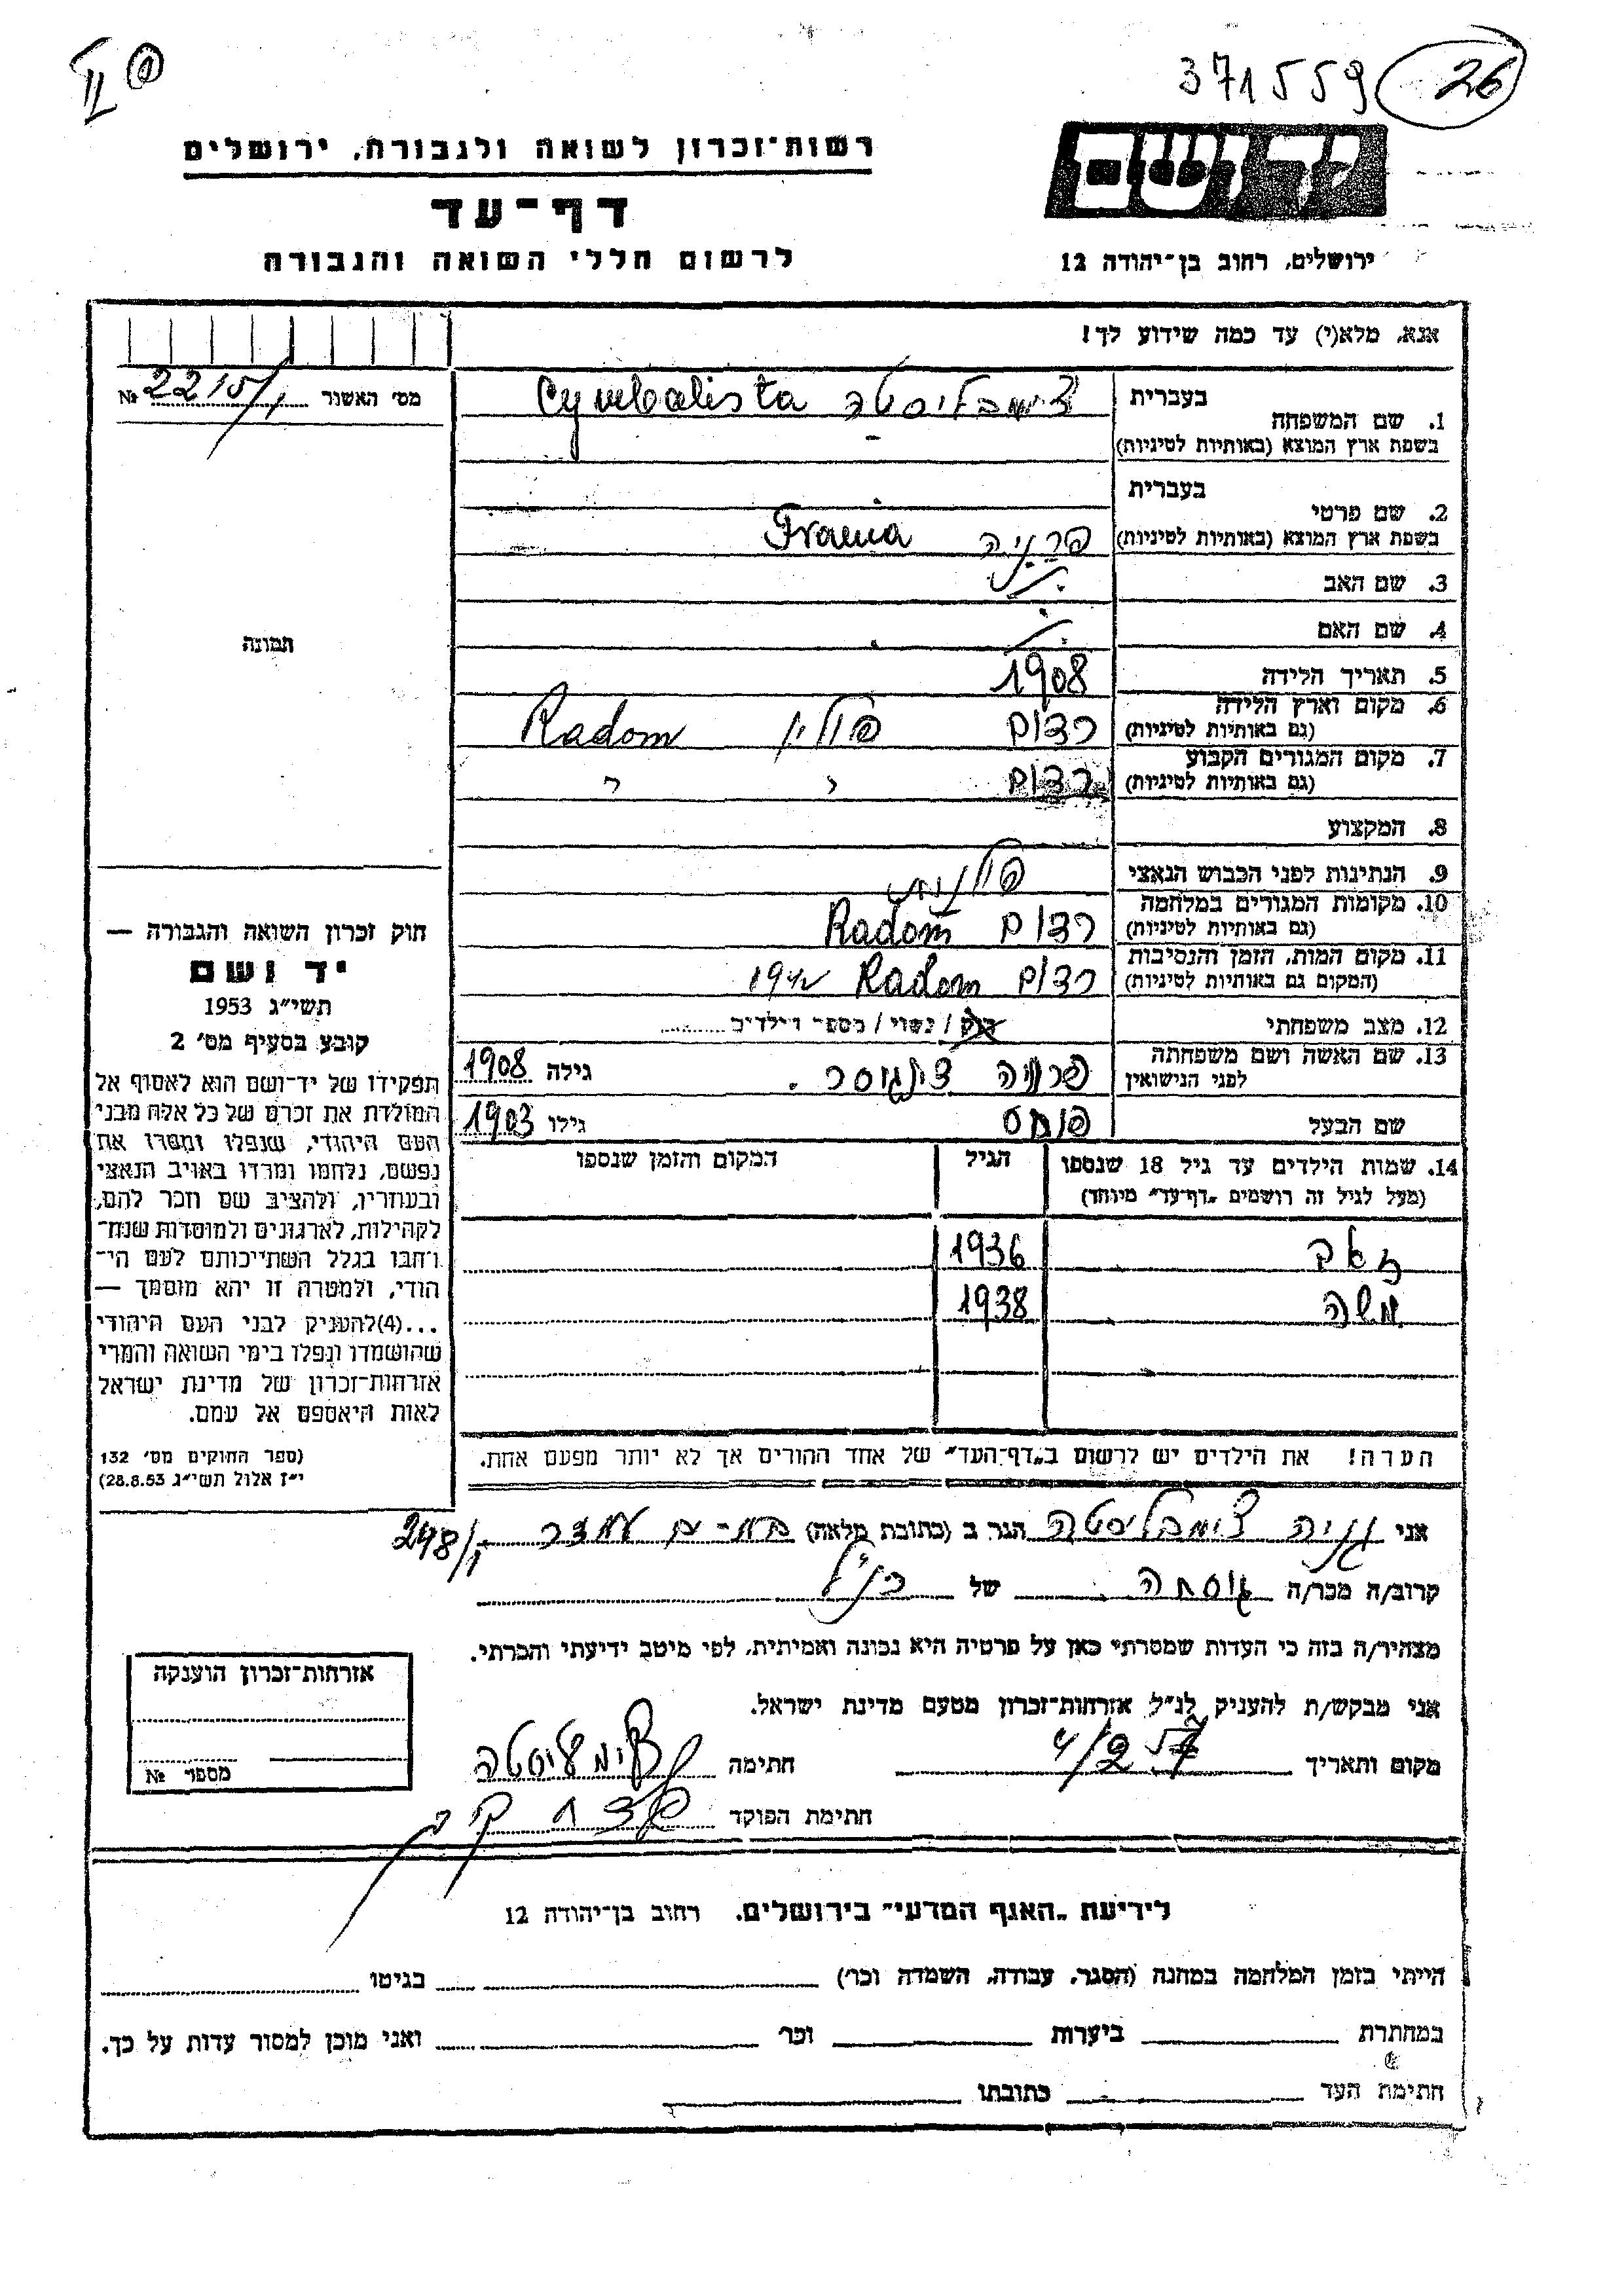 371559 26
רשות־זכרון לשואה ולגבורה, ירושלים
דף־עד
לרשום חללי השואה והגבורה
יד ושם
ירושלים, רחוב בן־יהודה 12
אנא, מלא(י) עד כמה שידוע לך!
מס׳ האשור № 2215/1
בעברית
1. שם המשפחה
בשפת ארץ המוצא (באותיות לטיניות)
צימבליסטה Cymbalista
בעברית
2. שם פרטי
בשפת ארץ המוצא (באותיות לטיניות)
פרניה Frania
3. שם האב
4. שם האם
5. תאריך הלידה 1908
6. מקום וארץ הלידה
(גם באותיות לטיניות)
רדום פולין Radom
7. מקום המגורים הקבוע
(גם באותיות לטיניות)
רדום " "
8. המקצוע
9. הנתינות לפני הכבוש הנאצי
10. מקומות המגורים במלחמה
(גם באותיות לטיניות)
רדום Radom
11. מקום המות, הזמן והנסיבות
(המקום גם באותיות לטיניות)
רדום Radom 1942
12. מצב משפחתי רוק / נשוי / מספר הילדים
13. שם האשה ושם משפחתה
לפני הנישואין
פרניה גילה 1908
שם הבעל פנחס גילו 1903
14. שמות הילדים עד גיל 18 שנספו
(מעל לגיל זה רושמים „דף־עד״ מיוחד)
הגיל
המקום והזמן שנספו
זאב 1936
משה 1938
הערה! את הילדים יש לרשום ב„דף־העד״ של אחד ההורים אך לא יותר מפעם אחת.
תמונה
חוק זכרון השואה והגבורה —
יד ושם
תשי״ג 1953
קובע בסעיף מס׳ 2
תפקידו של יד־ושם הוא לאסוף אל
המולדת את זכרם של כל אלה מבני
העם היהודי, שנפלו ומסרו את
נפשם, נלחמו ומרדו באויב הנאצי
ובעוזריו, ולהציב שם וזכר להם,
לקהילות, לארגונים ולמוסדות שנח־
רבו בגלל השתייכותם לעם הי־
הודי, ולמטרה זו יהא מוסמך —
...(4)להעניק לבני העם היהודי
שהושמדו ונפלו בימי השואה והמרי
אזרחות־זכרון של מדינת ישראל
לאות היאספם אל עמם.
(ספר החוקים מס׳ 132
י״ז אלול תשי״ג 28.8.53)
אני גניה צימבליסטה הגר ב (כתובת מלאה) בת-ים 298/1
קרוב/ה מכר/ה גיסתה של הנ״ל
מצהיר/ה בזה כי העדות שמסרתי כאן על פרטיה היא נכונה ואמיתית, לפי מיטב ידיעתי והכרתי.
אני מבקש/ת להעניק לנ״ל אזרחות־זכרון מטעם מדינת ישראל.
מקום ותאריך 4/2 57 חתימה
חתימת הפוקד
אזרחות־זכרון הוענקה
מספר №
לידיעת „האגף המדעי״ בירושלים, רחוב בן־יהודה 12
הייתי בזמן המלחמה במחנה (הסגר, עבודה, השמדה וכו׳) בגיטו
במחתרת ביערות וכו׳ ואני מוכן למסור עדות על כך.
חתימת העד כתובתו